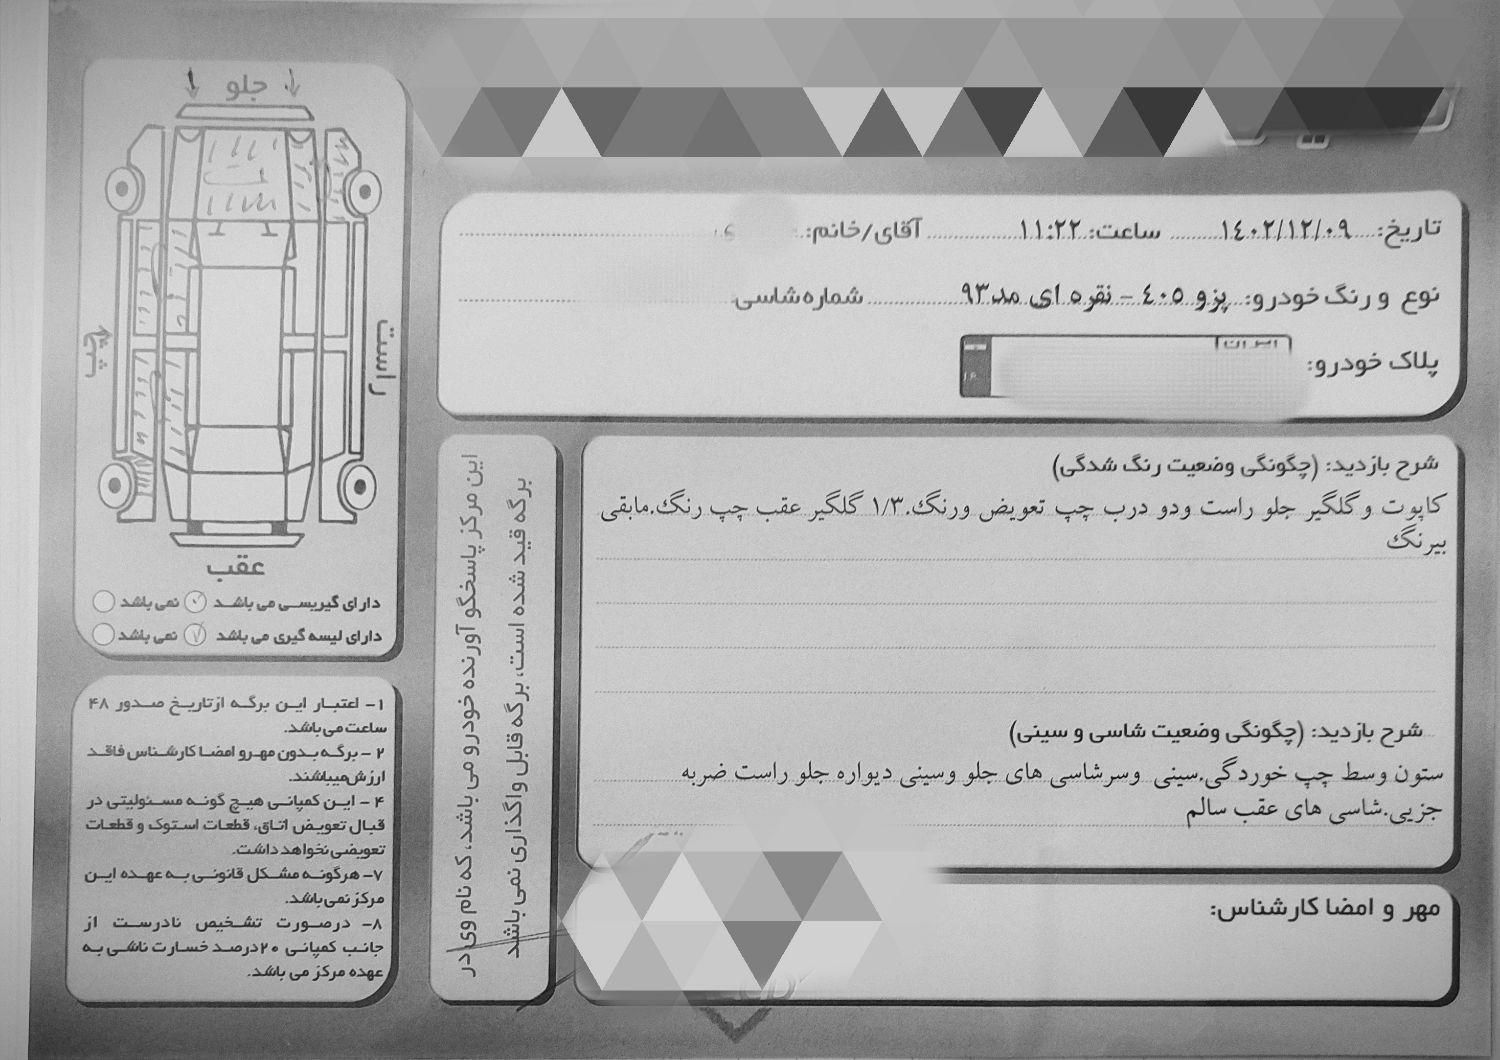 تاریخ: ۱٤۰۲/۱۲/۰۹ ساعت: ۱۱:۲۲ آقای/خانم:
نوع و رنگ خودرو: پزو ٤۰٥ - نقره ای مد۹۳ شماره شاسی
پلاک خودرو: ایران
شرح بازدید: (چگونگی وضعیت رنگ شدگی)
کاپوت و گلگیر جلو راست ودو درب چپ تعویض ورنگ.۱/۳ گلگیر عقب چپ رنگ.مابقی
بیرنگ
شرح بازدید: (چگونگی وضعیت شاسی و سینی)
ستون وسط چپ خوردگی.سینی وسرشاسی های جلو وسینی دیواره جلو راست ضربه
جزیی.شاسی های عقب سالم
مهر و امضا کارشناس:
این مرکز پاسخگو آورنده خودرو می باشد، که نام وی در
برگه قید شده است، برگه قابل واگذاری نمی باشد
جلو
راست
چپ
عقب
دارای گیریسی می باشد نمی باشد
دارای لیسه گیری می باشد نمی باشد
۱- اعتبار این برگه ازتاریخ صدور ۴۸
ساعت می باشد.
۲ - برگه بدون مهرو امضا کارشناس فاقد
ارزش میباشند.
۴ - این کمپانی هیچ گونه مسئولیتی در
قبال تعویض اتاق، قطعات استوک و قطعات
تعویضی نخواهد داشت.
۷- هرگونه مشکل قانونی به عهده این
مرکز نمی باشد.
۸- درصورت تشخیص نادرست از
جانب کمپانی ۲۰درصد خسارت ناشی به
عهده مرکز می باشد.